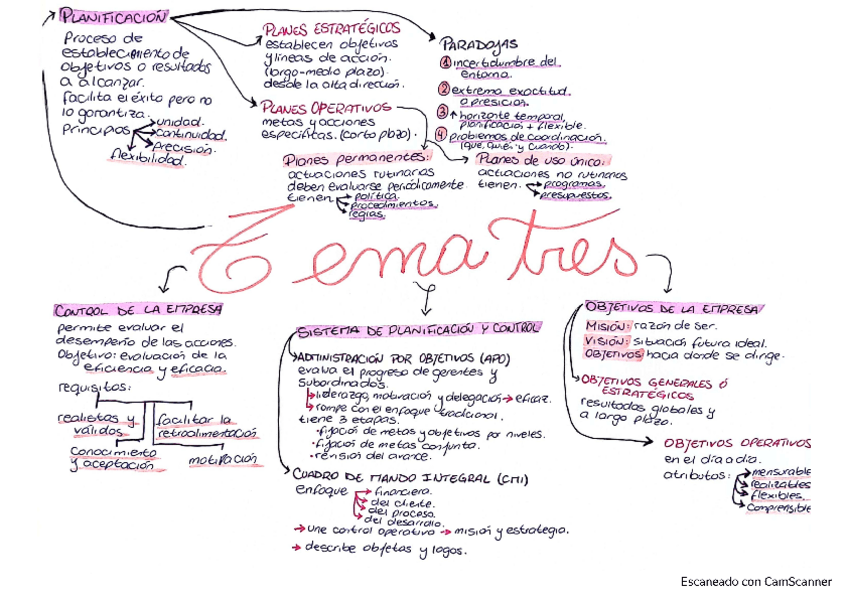 PLANIFICACIÓN
Proceso de
establecimiento de
objetivos o resultados
a alcanzar.
facilita el éxito pero no
lo garantiza.
Principios
unidad.
continuidad.
precisión.
flexibilidad.
PLANES ESTRATÉGICOS
establecen objetivos
y líneas de acción.
(largo-medio plazo).
desde la alta dirección.
PLANES OPERATIVOS
metas y acciones
específicas. (corto plazo).
PARADOJAS
① incertidumbre del
entorno.
② extrema exactitud.
o presicios.
③ ↑ horizonte temporal,
planificación + flexible.
④ problemas de coordinación.
(que, quién y cuando).
Planes permanentes:
actuaciones rutinarias
deben evaluarse periódicamente.
tienen
política.
procedimientos.
reglas.
Planes de uso único:
actuaciones no rutinarias
tienen.
programas.
presupuestos.
Tema Tres
CONTROL DE LA EMPRESA
permite evaluar el
desempeño de las acciones.
Objetivo: evaluación de la
eficiencia y eficacia.
requisitos:
realistas y
válidos
facilitar la
retroalimentación
conocimiento
y aceptación
motivación
SISTEMA DE PLANIFICACIÓN Y CONTROL
ADMINISTRACIÓN POR OBJETIVOS (APO)
evalua el progreso de gerentes y
subordinados.
liderazgo, motivación y delegación → eficaz.
rompe con el enfoque tradicional.
tiene 3 etapas.
· fijación de metas y objetivos por niveles.
· fijación de metas conjunta.
· revisión del avance.
CUADRO DE MANDO INTEGRAL (CMI)
enfoque
financiera.
del cliente.
del proceso.
del desarrollo.
→ une control operativo → misión y estrategia.
→ describe objetas y logos.
OBJETIVOS DE LA EMPRESA
MISIÓN: razón de ser.
VISIÓN: situación futura ideal.
OBJETIVOS hacia donde se dirige.
OBJETIVOS GENERALES Ó
ESTRATÉGICOS
resultados globales y
a largo plazo.
OBJETIVOS OPERATIVOS
en el día a día.
atributos:
mensurable
realizables
flexibles.
comprensible
Escaneado con CamScanner